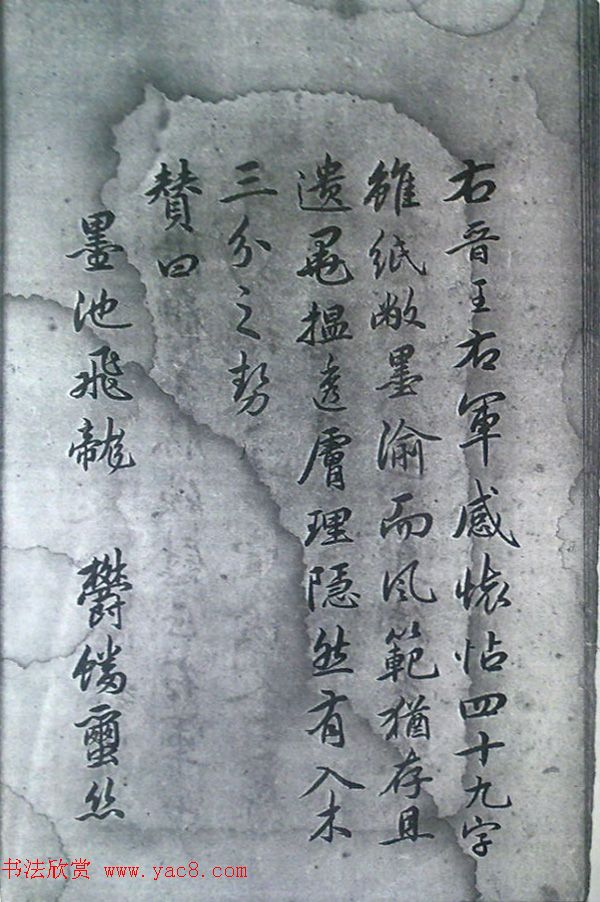 右晉王右軍感懷帖四十九字
雖紙敝墨渝而風範猶存且
遺毫揾透膚理隱然有入木
三分之勢
贊曰
墨池飛龍 欝蟠蠒絲
书法欣赏 www.yac8.com